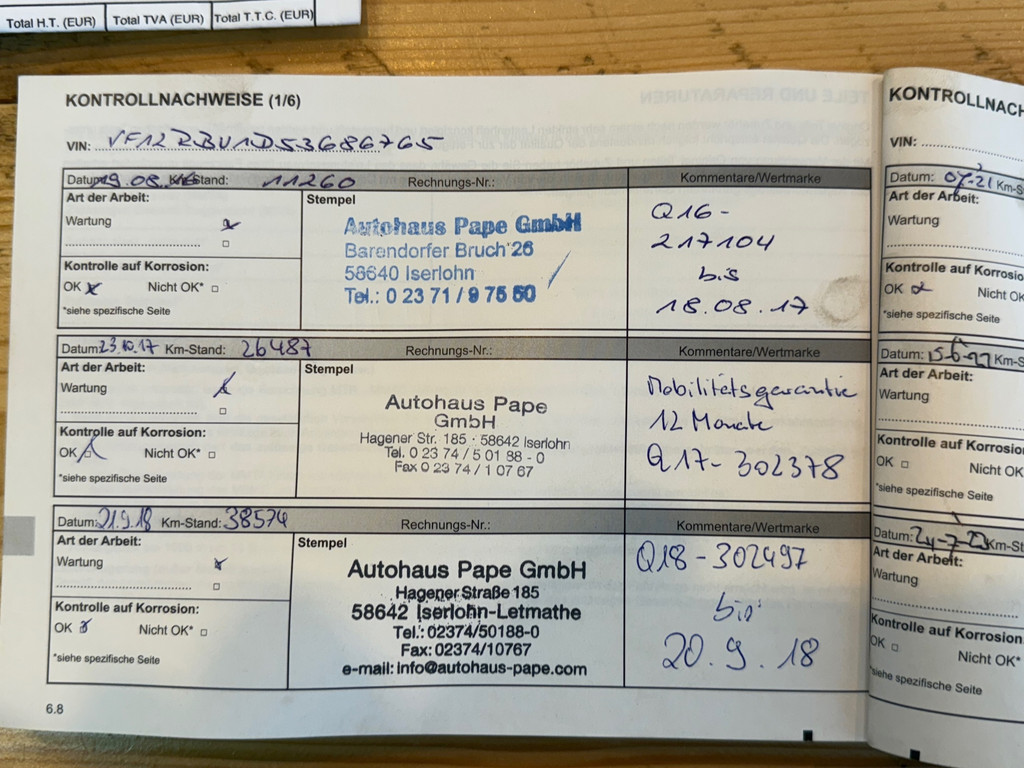 Total H.T. (EUR) Total TVA (EUR) Total T.T.C. (EUR)
KONTROLLNACHWEISE (1/6)
VIN: VF12RBU1D53686765
Datum: 19.08. Km-Stand: 11260 Rechnungs-Nr.: Kommentare/Wertmarke
Art der Arbeit:
Wartung
Kontrolle auf Korrosion:
OK Nicht OK*
*siehe spezifische Seite
Stempel
Autohaus Pape GmbH
Barendorfer Bruch 26
58640 Iserlohn
Tel.: 0 23 71 / 9 75 50
Q16-
217104
bis
18.08.17
Datum: 23.10.17 Km-Stand: 26487 Rechnungs-Nr.: Kommentare/Wertmarke
Art der Arbeit:
Wartung
Kontrolle auf Korrosion:
OK Nicht OK*
*siehe spezifische Seite
Stempel
Autohaus Pape
GmbH
Hagener Str. 185 · 58642 Iserlohn
Tel. 0 23 74 / 5 01 88 - 0
Fax 0 23 74 / 1 07 67
Mobilitätsgarantie
12 Monate
Q17-302378
Datum: 21.9.18 Km-Stand: 38574 Rechnungs-Nr.: Kommentare/Wertmarke
Art der Arbeit:
Wartung
Kontrolle auf Korrosion:
OK Nicht OK*
*siehe spezifische Seite
Stempel
Autohaus Pape GmbH
Hagener Straße 185
58642 Iserlohn-Letmathe
Tel.: 02374/50188-0
Fax: 02374/10767
e-mail: info@autohaus-pape.com
Q18-302497
bis
20.9.18
6.8
KONTROLLNACH
VIN:
Datum: 07-21 Km-S
Art der Arbeit:
Wartung
Kontrolle auf Korrosio
OK Nicht OK
*siehe spezifische Seite
Datum: 15-6-22 Km-S
Art der Arbeit:
Wartung
Kontrolle auf Korrosio
OK Nicht OK
*siehe spezifische Seite
Datum: 24-7-23 Km-St
Art der Arbeit:
Wartung
Kontrolle auf Korrosion
OK Nicht OK*
*siehe spezifische Seite